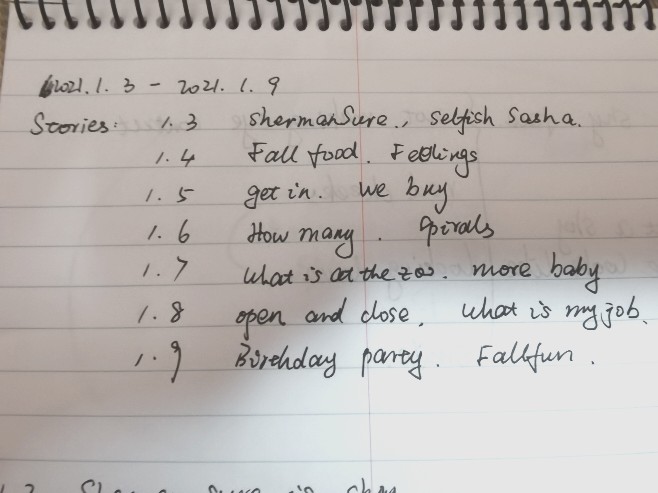 2021.1.3 - 2021.1.9
Stories: 1.3 Sherman Sure., Selfish Sasha.
1.4 Fall food. Feelings
1.5 get in. we buy
1.6 How many. Spirals
1.7 What is at the zoo. more baby
1.8 open and close. What is my job.
1.9 Birthday party. Fall fun.